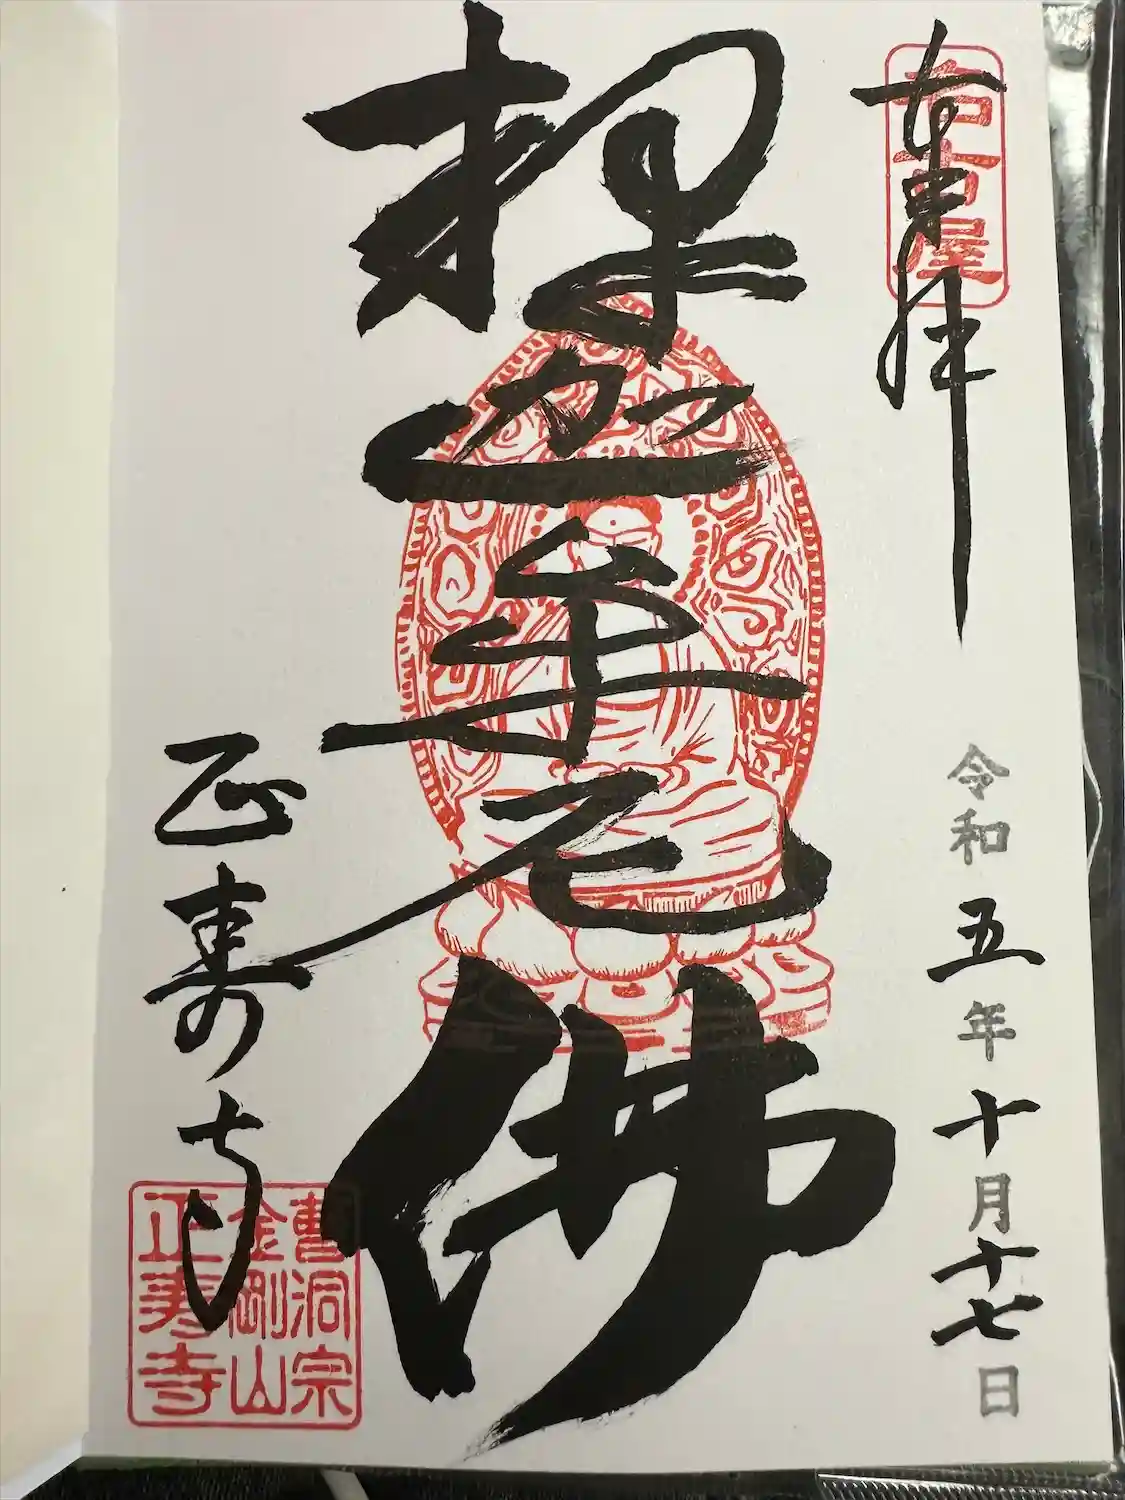 奉拝
名古屋
令和五年十月十七日
釈迦牟尼佛
正寿寺
曹洞宗
金剛山
正寿寺